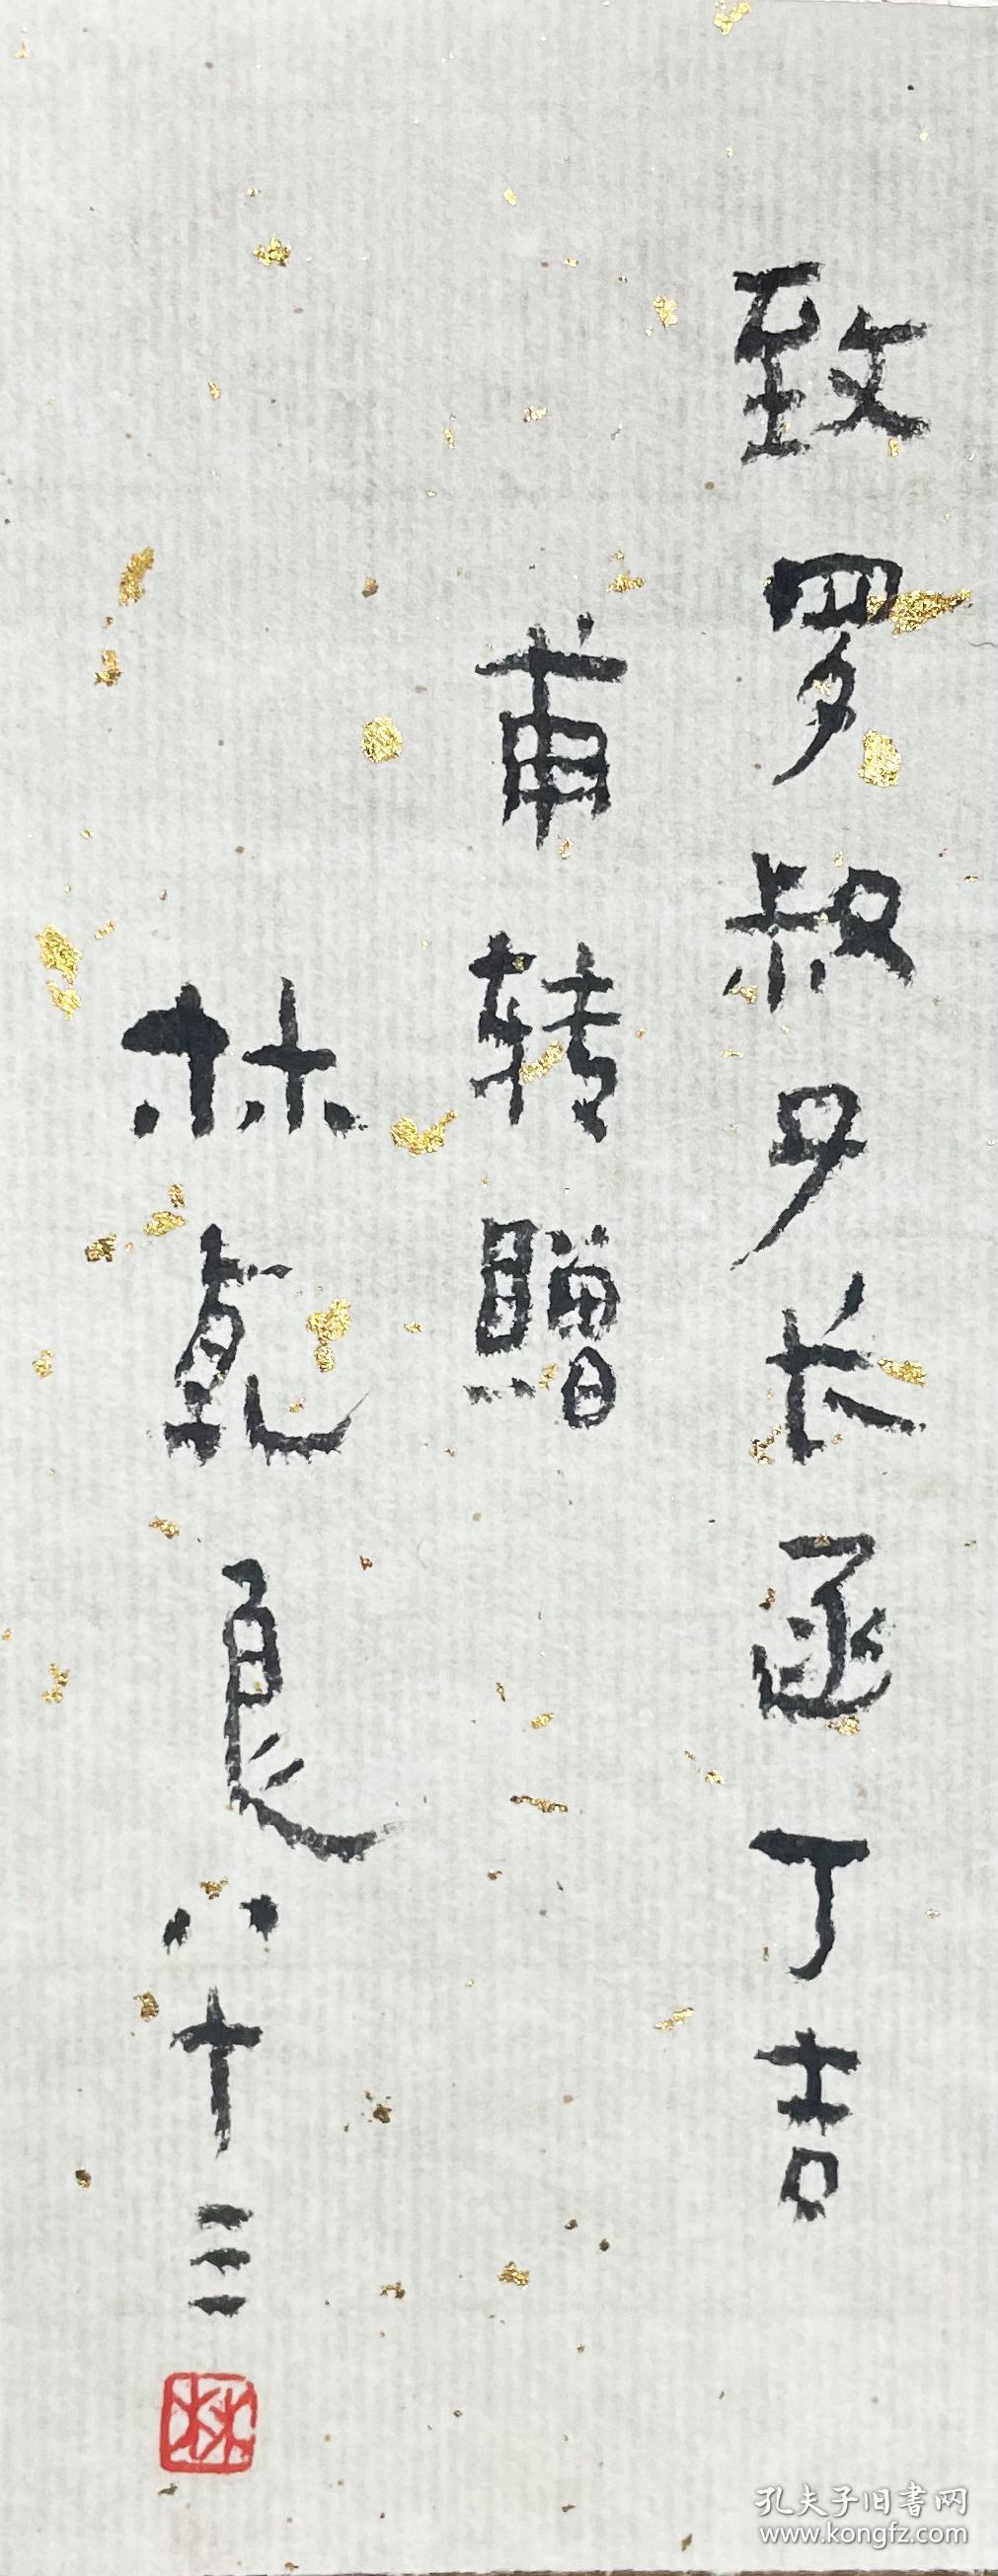 致罗叔子长函丁吉
甫转贈
林乾良八十三
林
孔夫子旧書网
www.kongfz.com